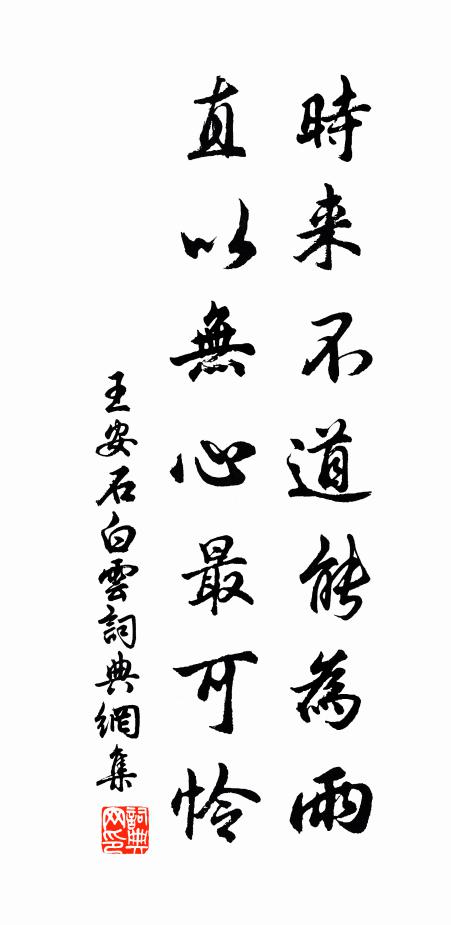 時来不道能為雨
直以無心最可怜
王安石白雲詞典網集
詞典网印